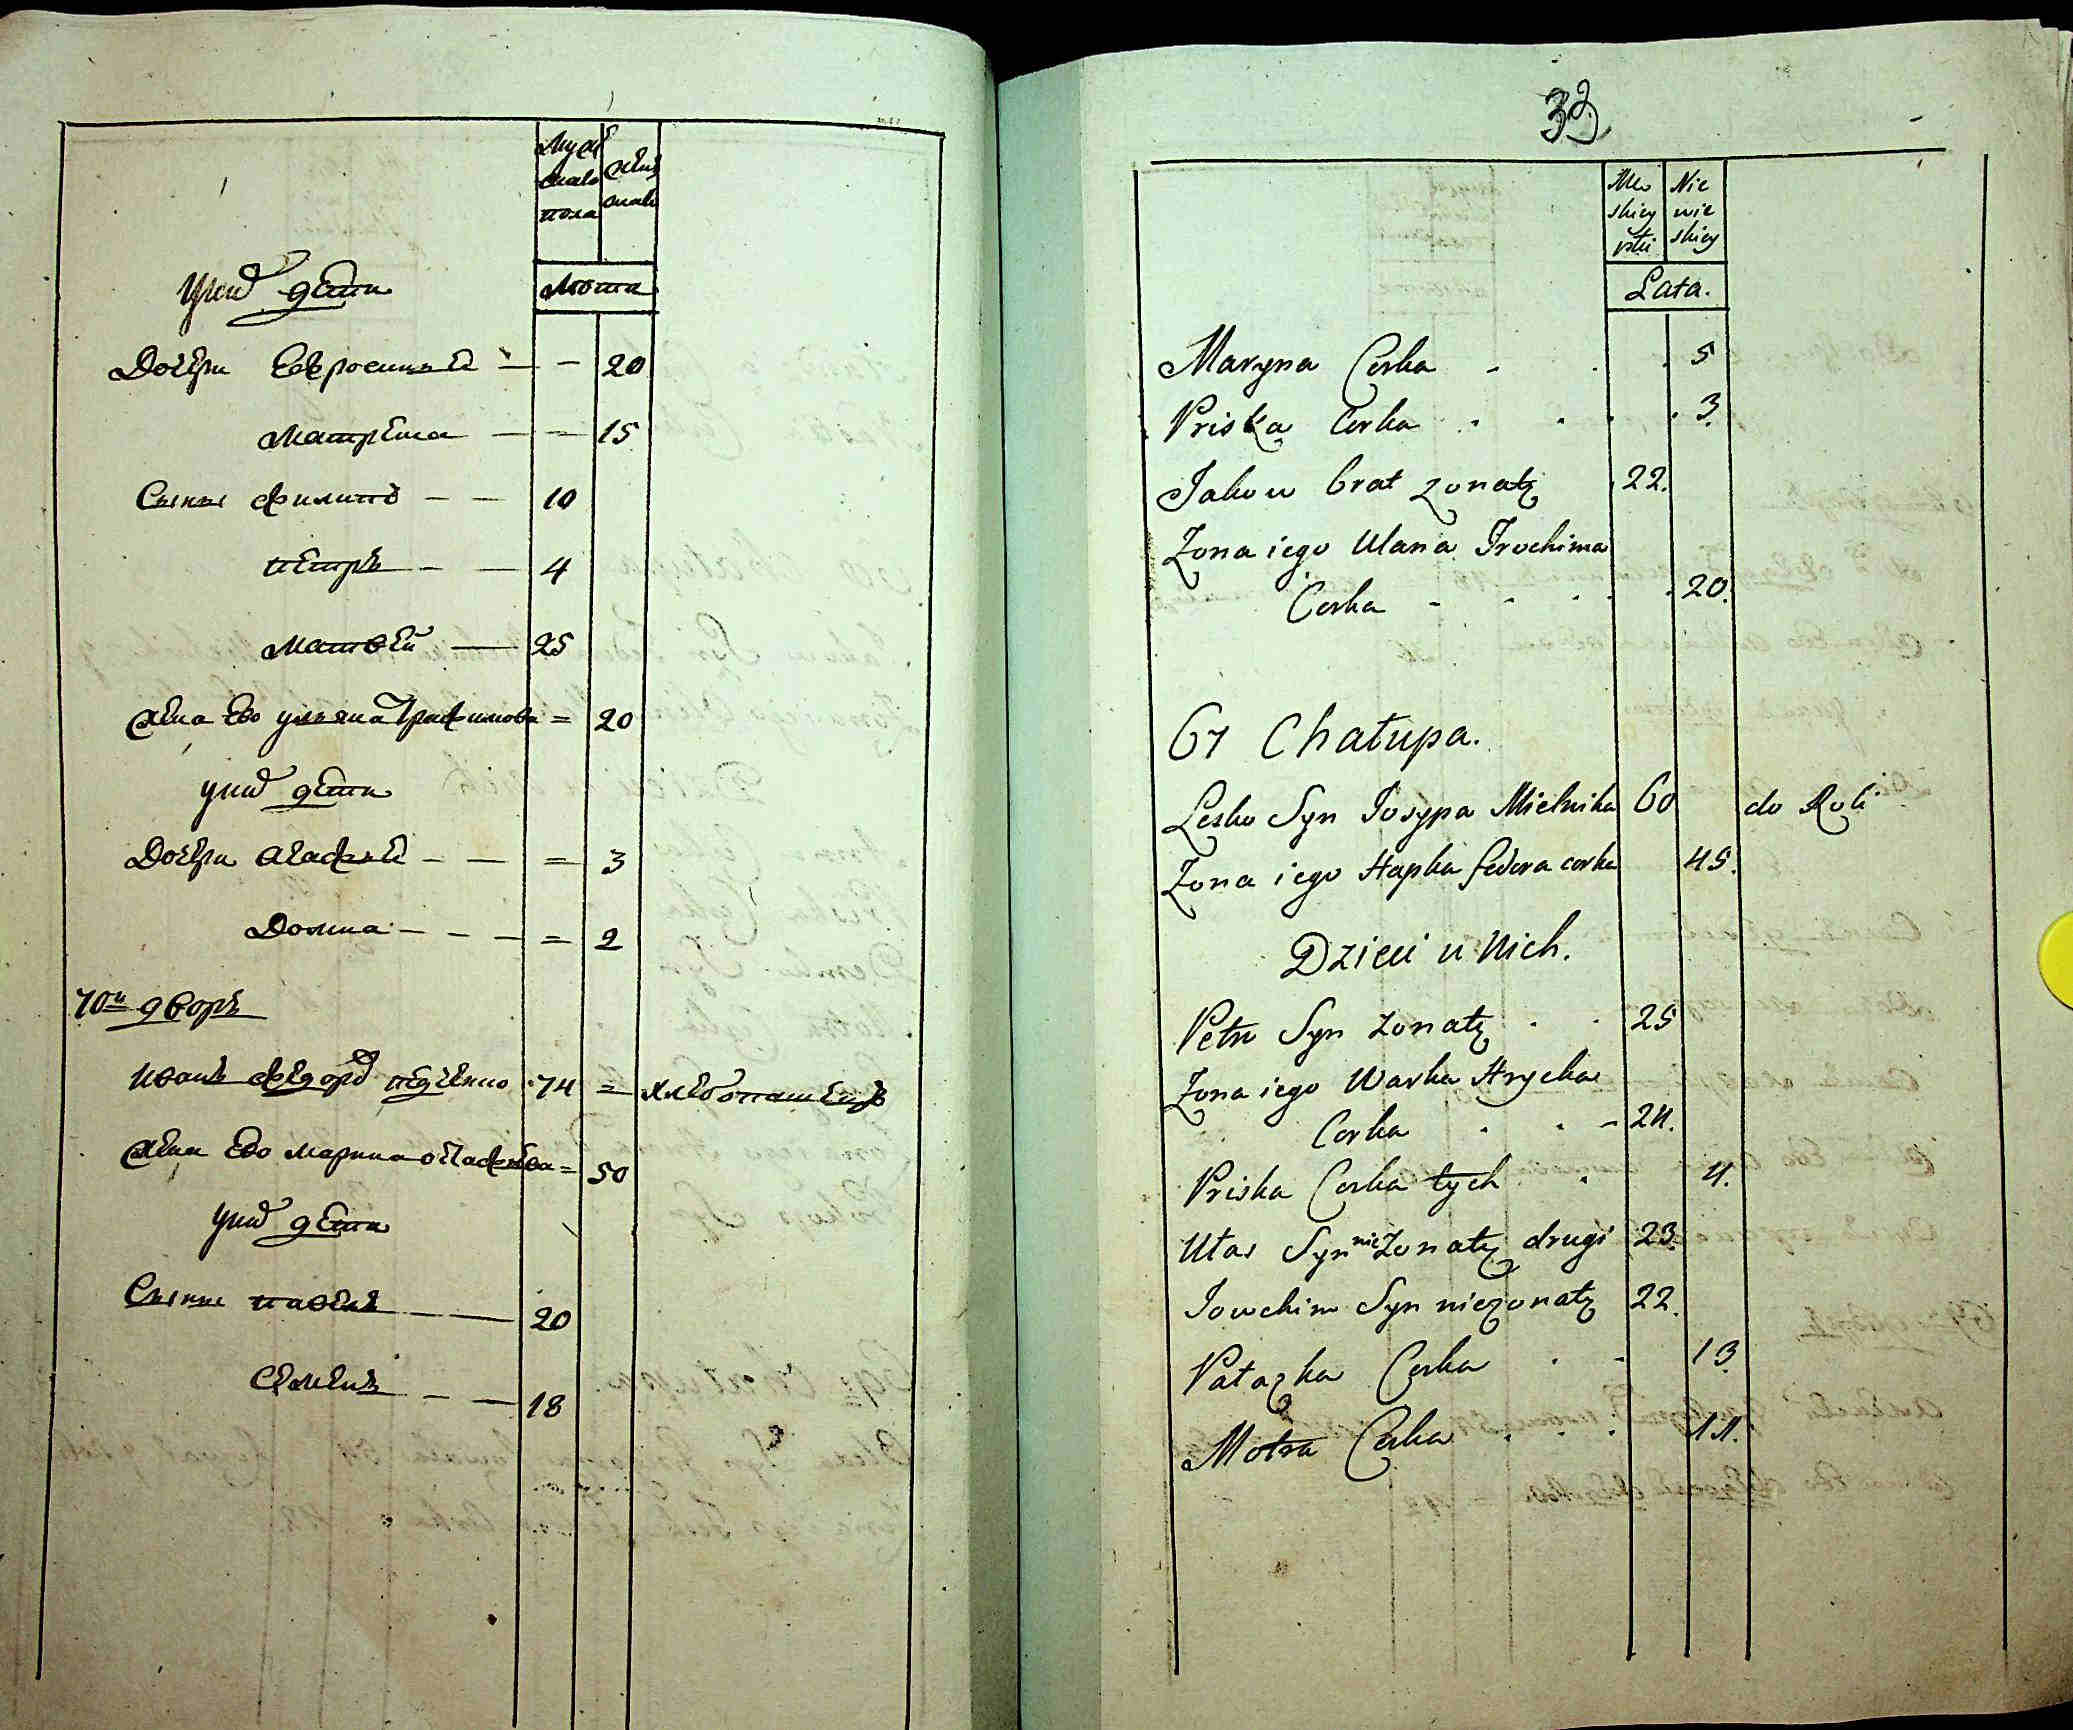 Мужескаго пола
женскаго
Лѣта
у них дети
Дочери Евросиния — — 20
Матрена — — 15
Сыны Филипъ — — 10
Петръ — — 4
Матвей — 25
Жена Ево ульяна Трафимова = 20
у них дети
Дочери Агафия — — = 3
Домна — — — = 2
70й дворъ
Иванъ Федоров 74 = хлебопашецъ
Жена Ево Марина Остафьева = 50
у них дети
Сыны Павелъ — 20
Семенъ — — 18
33
Męskiey płci
Niewieskiey
Lata.
Maryna Corka - . . 5
Priska Corka . . . . 3
Jakow brat zonaty 22.
Zona iego Ulana Trochima
Corka - - . . . 20.
67 Chałupa.
Lesko Syn Josypa Mielnika 60 do Roli
Zona iego Hapka fedora corka 45.
Dzieci u Nich.
Petro Syn zonaty . . 25
Zona iego Warka Hrycka
Corka . . - 24.
Priska Corka tych . 4.
Ułas Syn nie Zonaty drugi 23.
Jowchim Syn niezonaty 22.
Natazka Corka . - 13
Motra Corka . . . 11.